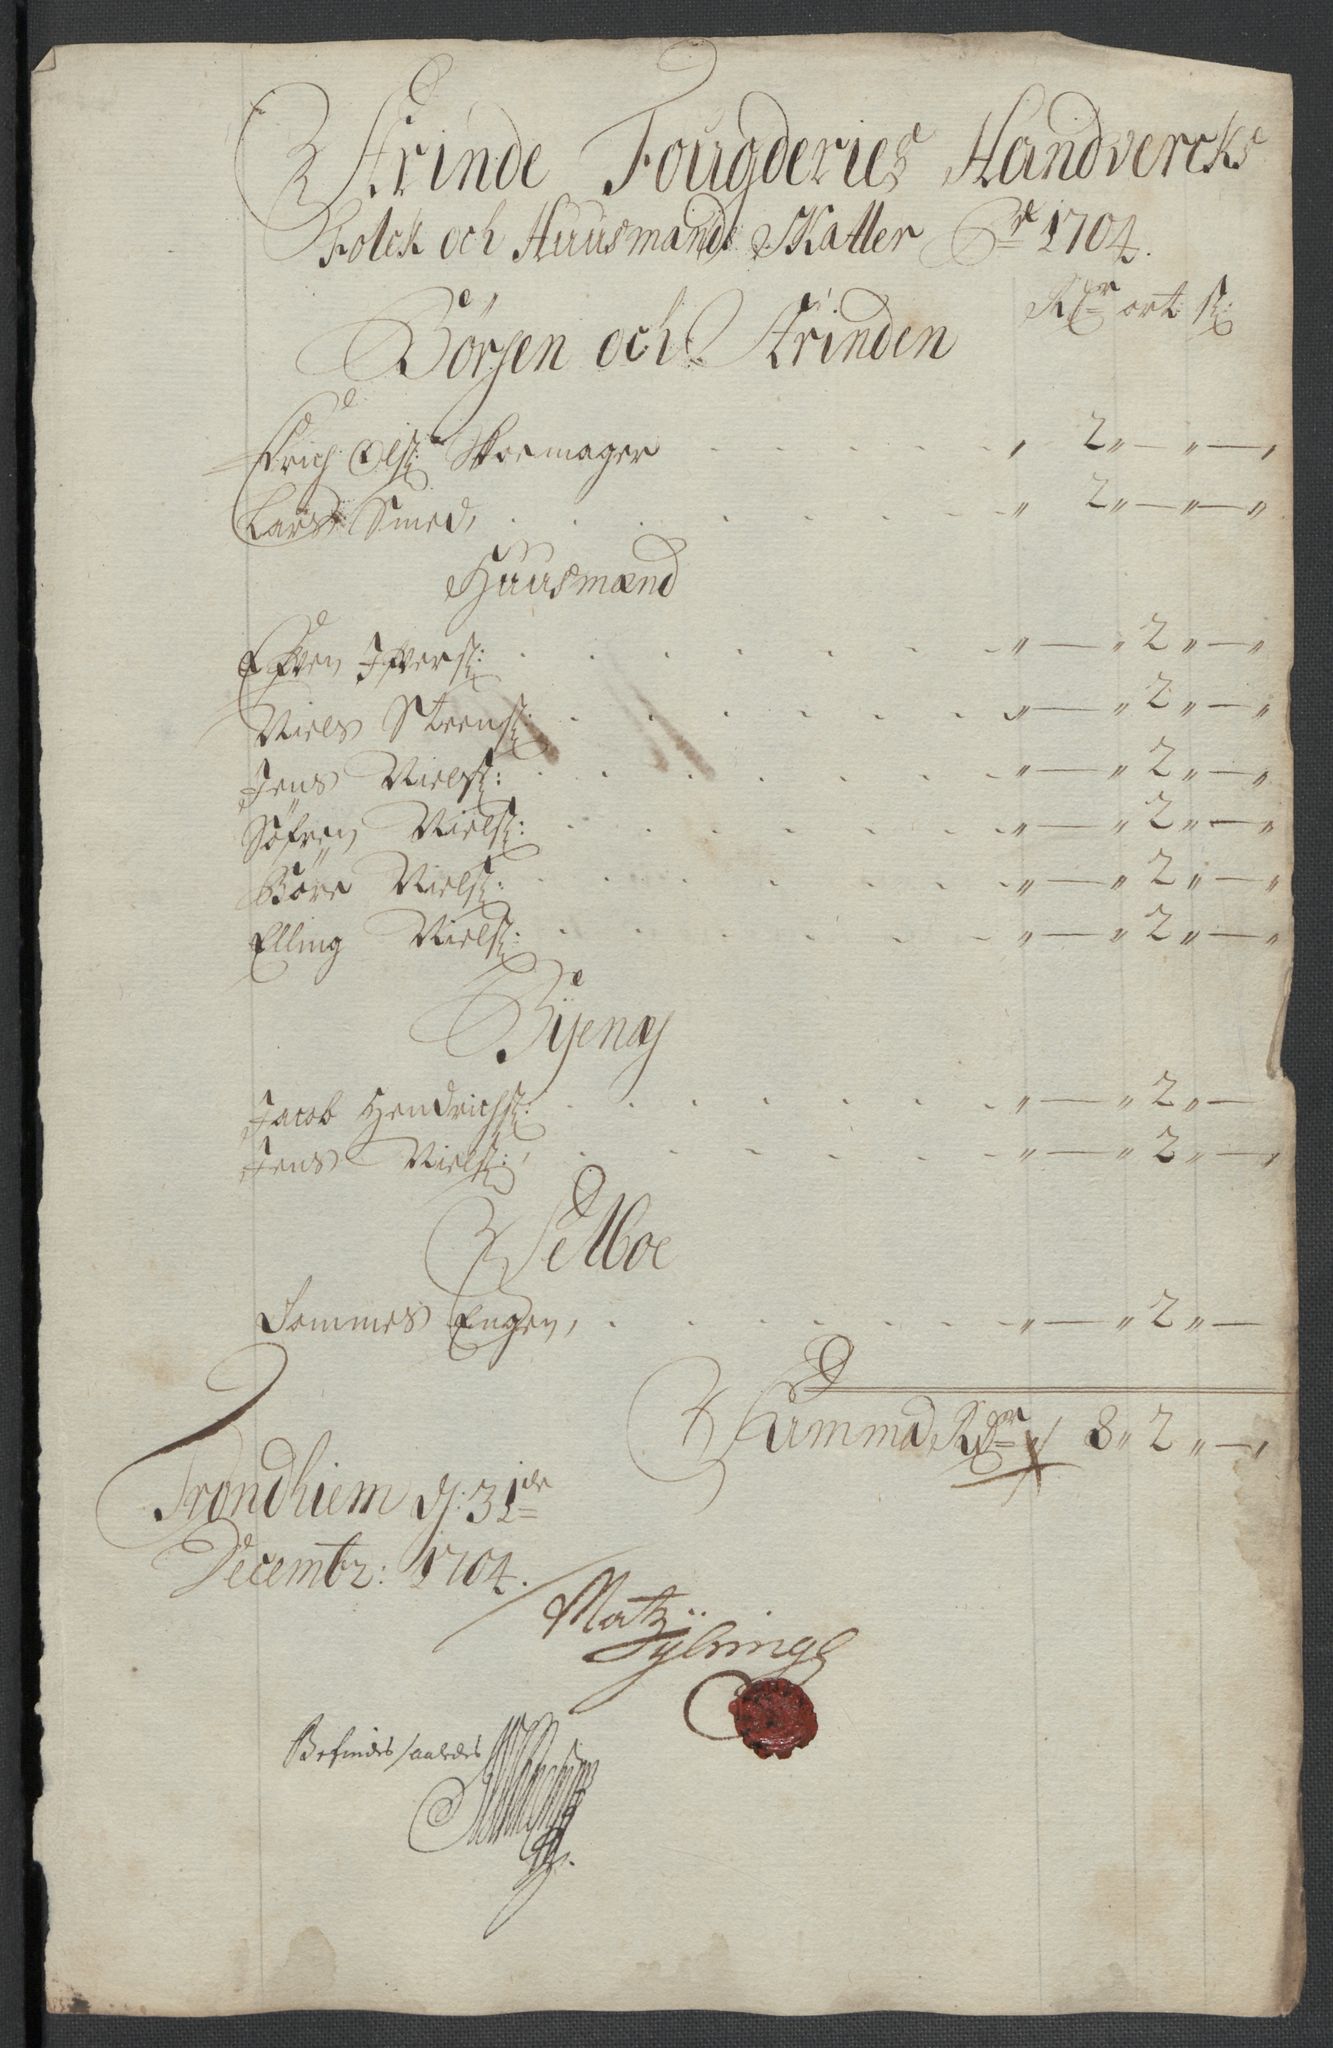 Strinde Fougderies Handvercks
Folck och Huusmænds Skatter Pr 1704.
Rdr ort s:
Børsen och Strinden
Erich Olss: Skoemager . . . . . „ 2„ — „ — „
Lars Smed, . . . . . . . „ 2„ — „ — „
Huusmænd
Effven Iffverss: . . . . . . „ — „ 2 „ — „
Niels Steenss: . . . . . . „ — „ 2 „ — „
Jens Nielss: . . . . . . „ — „ 2 „ — „
Söfren Nielss: . . . . . . „ — „ 2 „ — „
Böre Nielss: . . . . . . „ — „ 2 „ — „
Elling Nielss: . . . . . . „ — „ 2 „ — „
Bÿenæs
Jacob Hendrichss: . . . . . . „ — „ 2 „ —
Jens Nielss: . . . . . . „ — „ 2 „ — „
Selboe
Tommes Engen, . . . . . . „ — „ 2 „ —
Summa Rdr 8„ 2 „ — „
Trondhiem d: 31de
Decembr: 1704.
Befindes saaledes